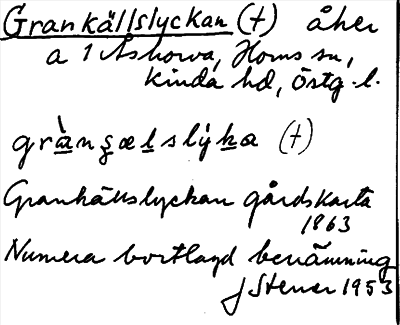 Grankällslyckan (†) åker
a 1 Åshorva, Horns sn,
Kinda hd, Östg. l.
grànşælslýka (†)
Grankällslyckan gårdskarta
1863
Numera bortlagd benämning
J Stener 1953